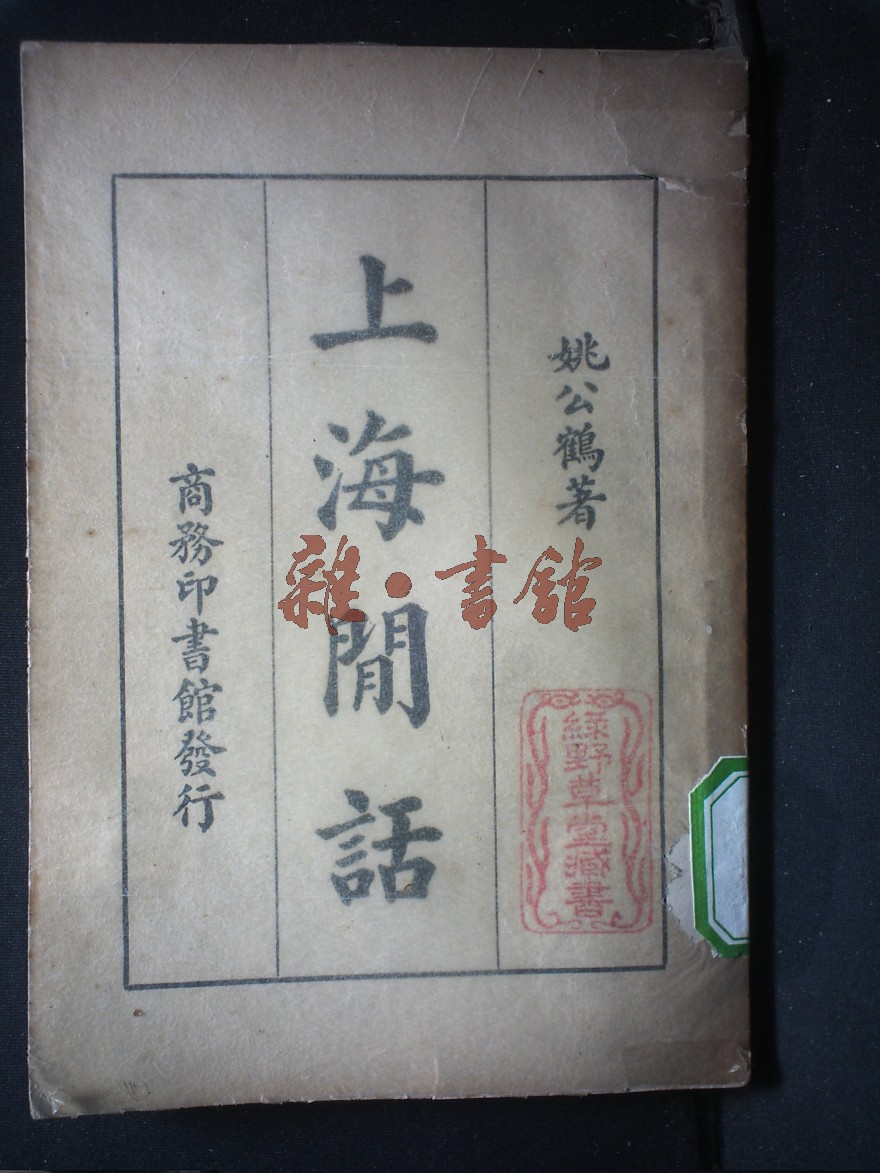 姚公鶴著
上海閒話
商務印書館發行
綠野草堂藏書
雜·書館